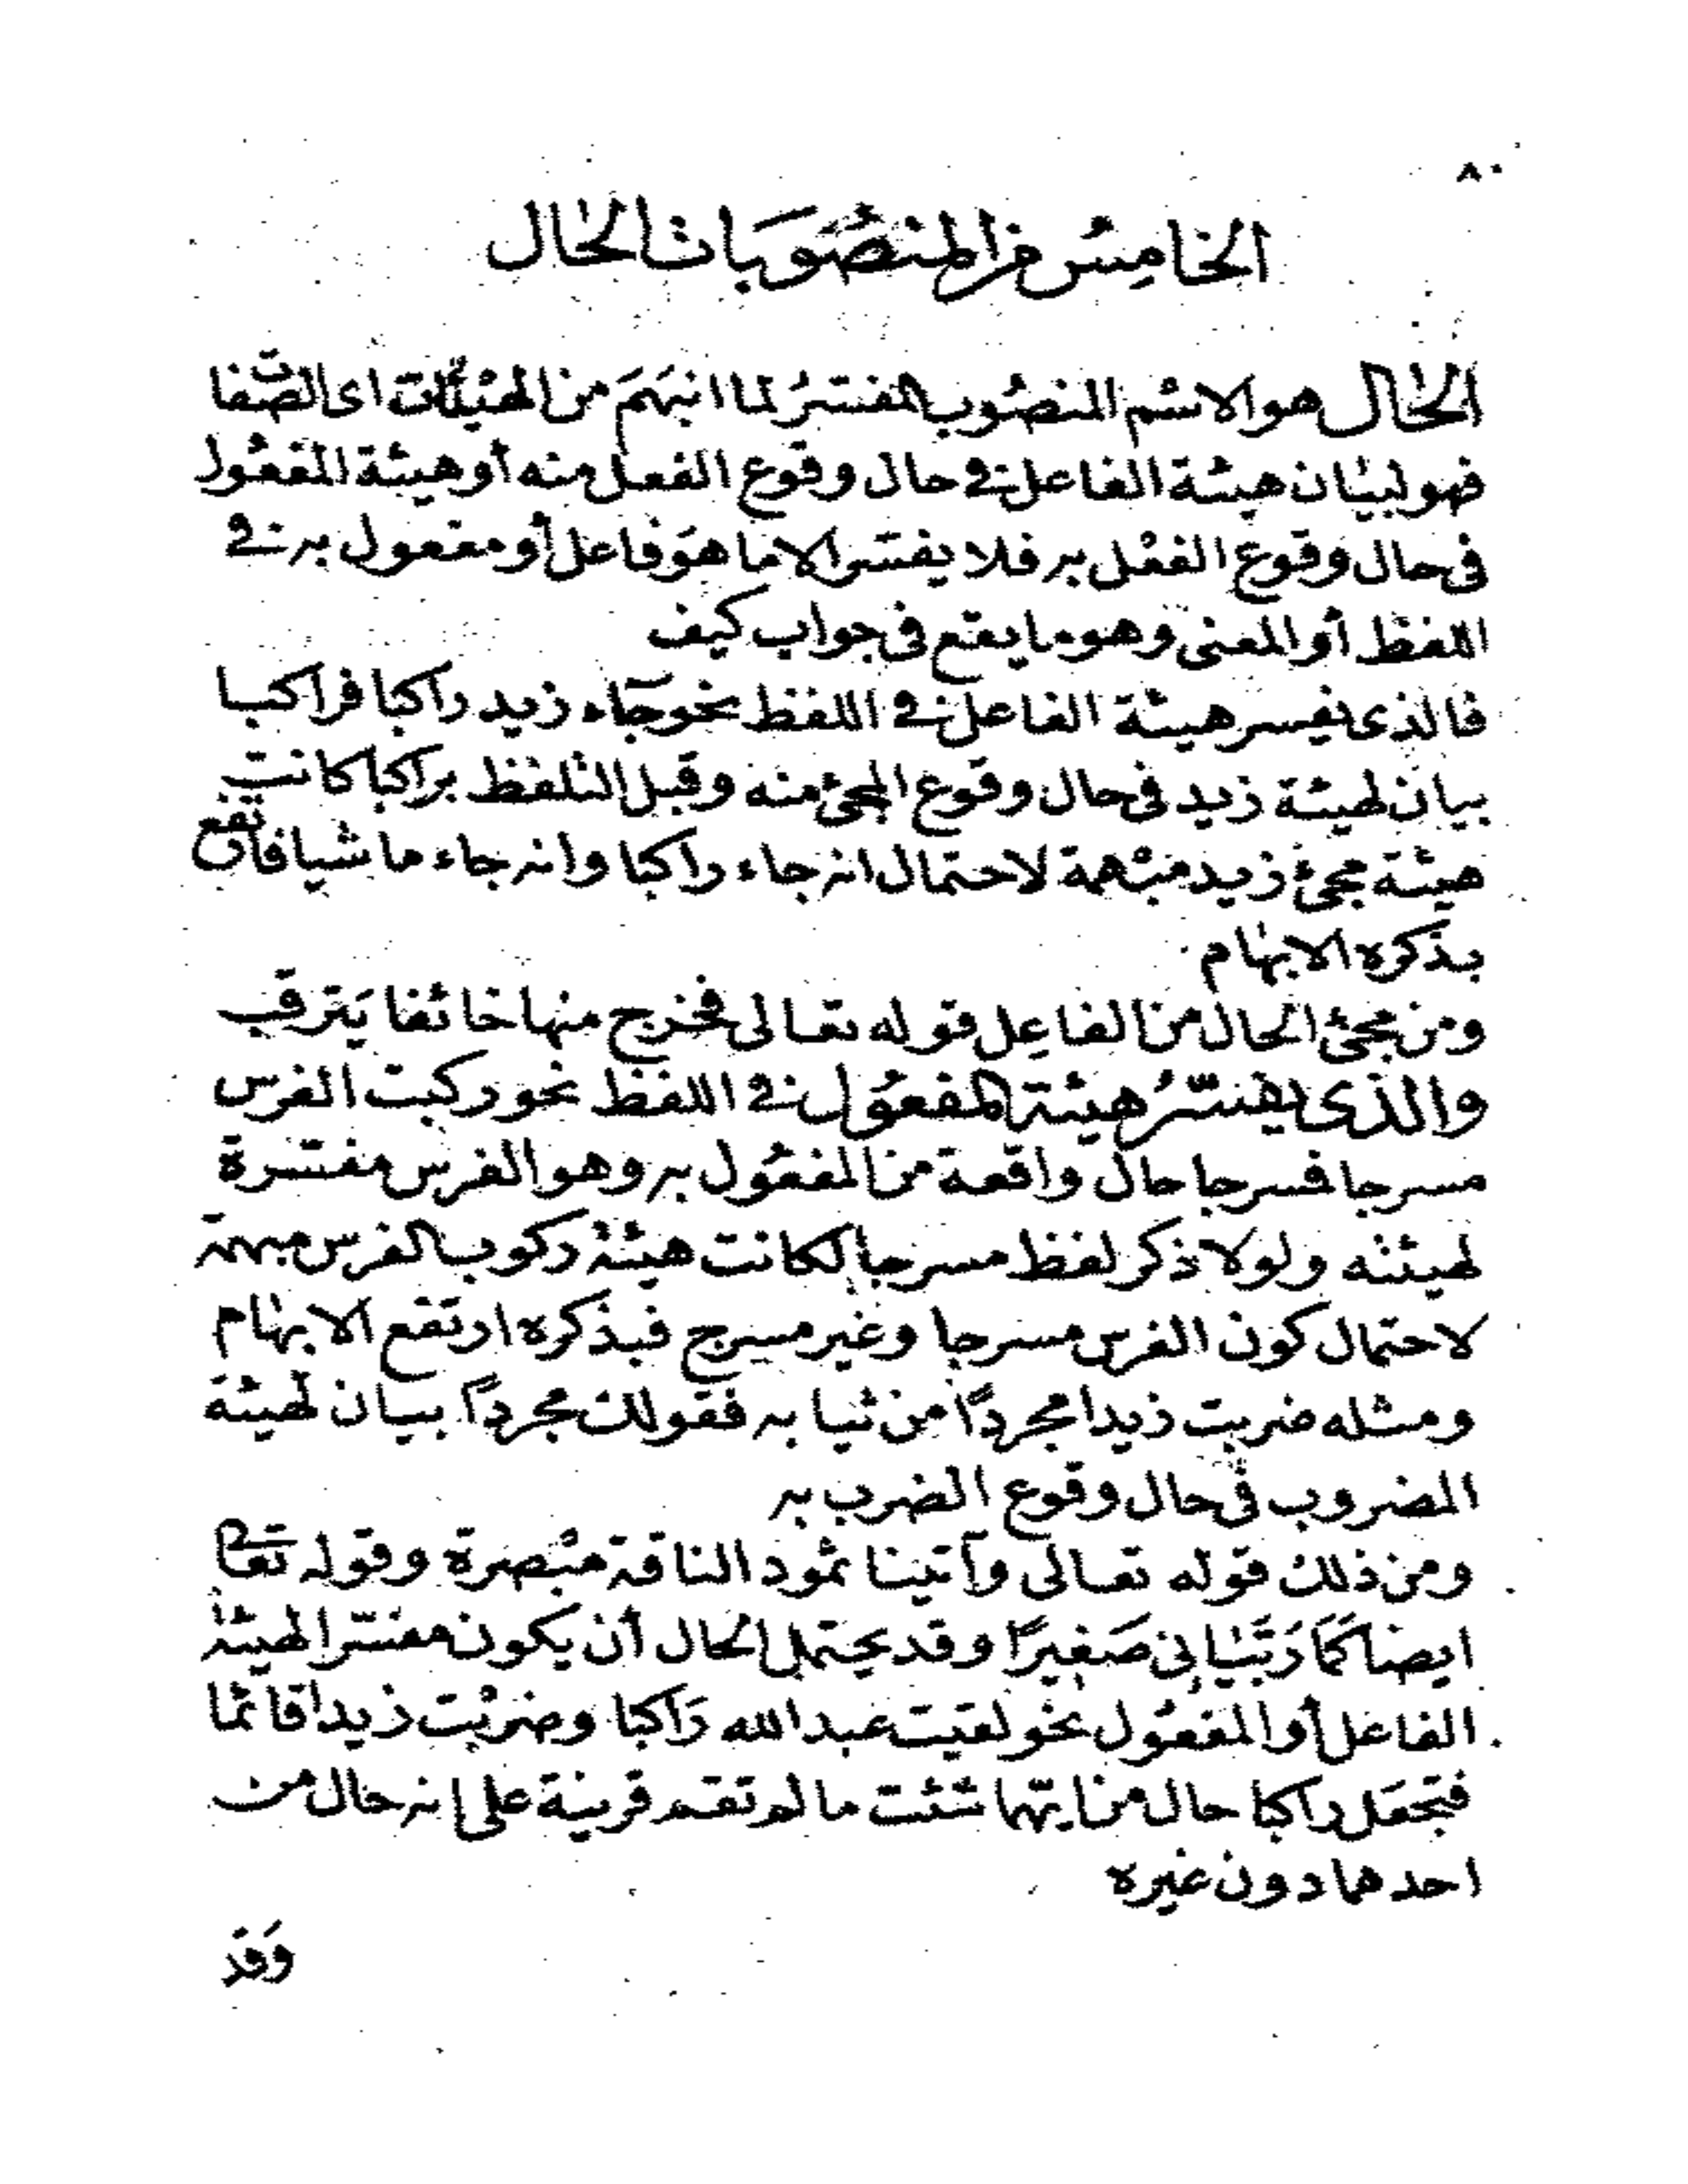 ٨٠
الخامِسُ من المنصُوبَات الحال
الحال هو الاسْم المنصُوب المفسّرُ لما انبَهَمَ من الهيئات اى الصّفات
فهو لبيان هيئة الفاعل فى حال وقوع الفعل منه أو هيئة المفعُول
فى حال وقوع الفعْل به فلا يفسّر الا ما هوَ فاعل أو مفعول به فى
اللفظ أو المعنى وهو ما يقع فى جواب كيف
فالذى يفسر هيئة الفاعل فى اللفظ نحو جآء زيد راكبا فراكبا
بيان لهيئة زيد فى حال وقوع المجئ منه وقبل التلفظ براكبا كانت
هيئة مجئ زيد مبْهمة لاحتمال انه جاء راكبا وانه جاء ماشيا فارتفع
بذكره الابهام
ومن مجئ الحال من الفاعِل قوله تعالى فخرج منها خائفا يَترقب
والذى يفسّرُ هيئة المفعُول فى اللفظ نحو ركبت الفرس
مسرجا فسرجا حال واقعة من المفعُول به وهو الفرس مفسّرة
لهيئته ولولا ذكر لفظ مسرجا لكانت هيئة ركوب الفرس مبهمة
لاحتمال كون الفرس مسرجا وغير مسرج فبذكره ارتفع الابهام
ومثله ضربت زيدا مجردًا من ثيابه فقولك مجردًا بيان لهيئة
المضروب فى حال وقوع الضرب به
ومن ذلك قوله تعالى وآتينا ثمود الناقة مبْصرة وقوله تعالى
ايضا كَمَا رَبَّيَانِى صَغِيرًا وقد يحتمل الحال أن يكون مفسّرا لهيئة
الفاعل أو المفعُول نحو لقيت عبد الله رَاكبا وضربْت زيدا قائما
فتجعَل راكبا حال من ايّهما شئت ما لم تقم قرينة على انه حال من
احدهما دون غيره
وَقَد